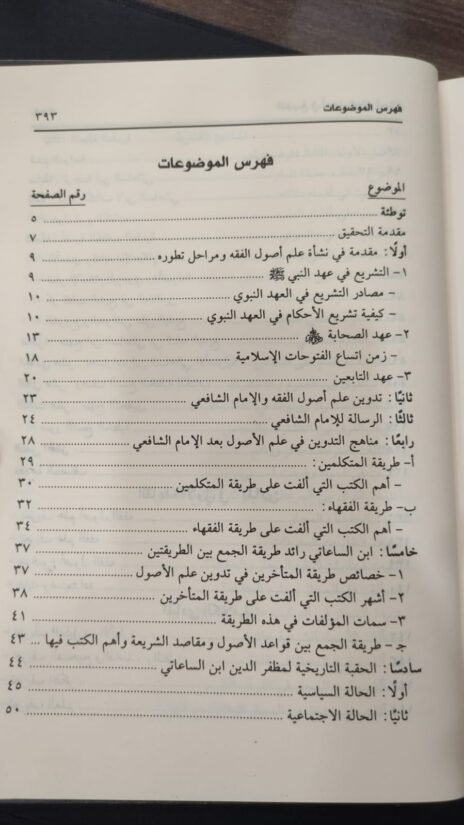 فهرس الموضوعات ٣٩٣
فهرس الموضوعات
الموضوع رقم الصفحة
توطئة ٥
مقدمة التحقيق ٧
أولًا: مقدمة في نشأة علم أصول الفقه ومراحل تطوره ٩
١- التشريع في عهد النبي ﷺ ٩
- مصادر التشريع في العهد النبوي ١٠
- كيفية تشريع الأحكام في العهد النبوي ١٠
٢- عهد الصحابة ١٣
- زمن اتساع الفتوحات الإسلامية ١٨
٣- عهد التابعين ٢٠
ثانيًا: تدوين علم أصول الفقه والإمام الشافعي ٢٣
ثالثًا: الرسالة للإمام الشافعي ٢٤
رابعًا: مناهج التدوين في علم الأصول بعد الإمام الشافعي ٢٨
أ- طريقة المتكلمين: ٢٩
- أهم الكتب التي ألفت على طريقة المتكلمين ٣٠
ب- طريقة الفقهاء: ٣٢
- أهم الكتب التي ألفت على طريقة الفقهاء ٣٤
خامسًا: ابن الساعاتي رائد طريقة الجمع بين الطريقتين ٣٧
١- خصائص طريقة المتأخرين في تدوين علم الأصول ٣٧
٢- أشهر الكتب التي ألفت على طريقة المتأخرين ٣٨
٣- سمات المؤلفات في هذه الطريقة ٤١
جـ- طريقة الجمع بين قواعد الأصول ومقاصد الشريعة وأهم الكتب فيها ٤٣
سادسًا: الحقبة التاريخية لمظفر الدين ابن الساعاتي ٤٤
أولًا: الحالة السياسية ٤٥
ثانيًا: الحالة الاجتماعية ٥٠